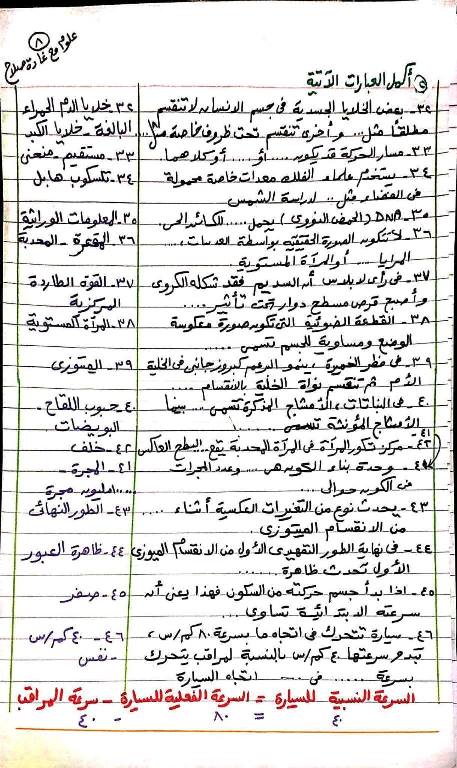 علوم مع غادة صلاح
٨
و أكمل العبارات الآتية
٣٢- بعض الخلايا الجسدية فى جسم الإنسان لا تنقسم
مطلقاً مثل ... و أخرى تنقسم تحت ظروف خاصة مثل ...
٣٢- خلايا الدم الحمراء
البالغة - خلايا الكبد
٣٣- مسار الحركة قد يكون ... أو .... أو كلاهما.
٣٣- مستقيم - منحنى
٣٤- يستخدم علماء الفلك معدات خاصة محمولة
فى الفضاء مثل .. لدراسة الشمس
٣٤- تلسكوب هابل
٣٥- DNA (الحمض النووى) يحمل ..... للكائن الحى.
٣٥- المعلومات الوراثية
٣٦- لا تتكون الصورة الحقيقية بواسطة العدسات ....
المرايا .... أو المرآة المستوية
٣٦- المقعرة - المحدبة
٣٧- فى رأى لابلاس أن السديم فقد شكله الكروى
و أصبع قرص مسطح دوار تحت تأثير ....
٣٧- القوة الطاردة
المركزية
٣٨- القطعة الضوئية التى تكون صورة معكوسة
الوضع ومساوية للجسم تسمى .....
٣٨- المرآة المستوية
٣٩- فى فطر الخميرة ، ينمو البرعم كبروز جانبى فى الخلية
الأم ثم تنقسم نواة الخلية بالانقسام ....
٣٩- الميتوزى
٤٠- فى النباتات ، الأمشاج المذكرة تسمى ... بينما
الأمشاج المؤنثة تسمى ....
٤٠- حبوب اللقاح -
البويضات
٤٢- مركز تكور المرآة فى المرآة المحدبة يقع ... السطح العاكس
٤٢- خلف
٤١- وحدة بناء الكون هى .... وعدد المجرات
فى الكون حوالى ...
٤١- المجرة -
مليون مجرة
٤٣- يحدث نوع من التغيرات العكسية أثناء ....
من الانقسام الميتوزى.
٤٣- الطور النهائى
٤٤- فى نهاية الطور التمهيدى الأول من الانقسام الميوزى
الأول تحدث ظاهرة .......
٤٤- ظاهرة العبور
٤٥- اذا بدأ جسم حركته من السكون فهذا يعنى أن
سرعته الابتدائية تساوى ...
٤٥- صفر
٤٦- سيارة تتحرك فى اتجاه ما بسرعة ٨٠ كم/س ،
تبدو سرعتها ٤٠ كم/س بالنسبة لمراقب يتحرك
بسرعة ...... فى .... اتجاه السيارة
٤٦- ٤٠ كم/س
- نفس
السرعة النسبية للسيارة = السرعة الفعلية للسيارة - سرعة المراقب
٤٠ = ٨٠ - ٤٠